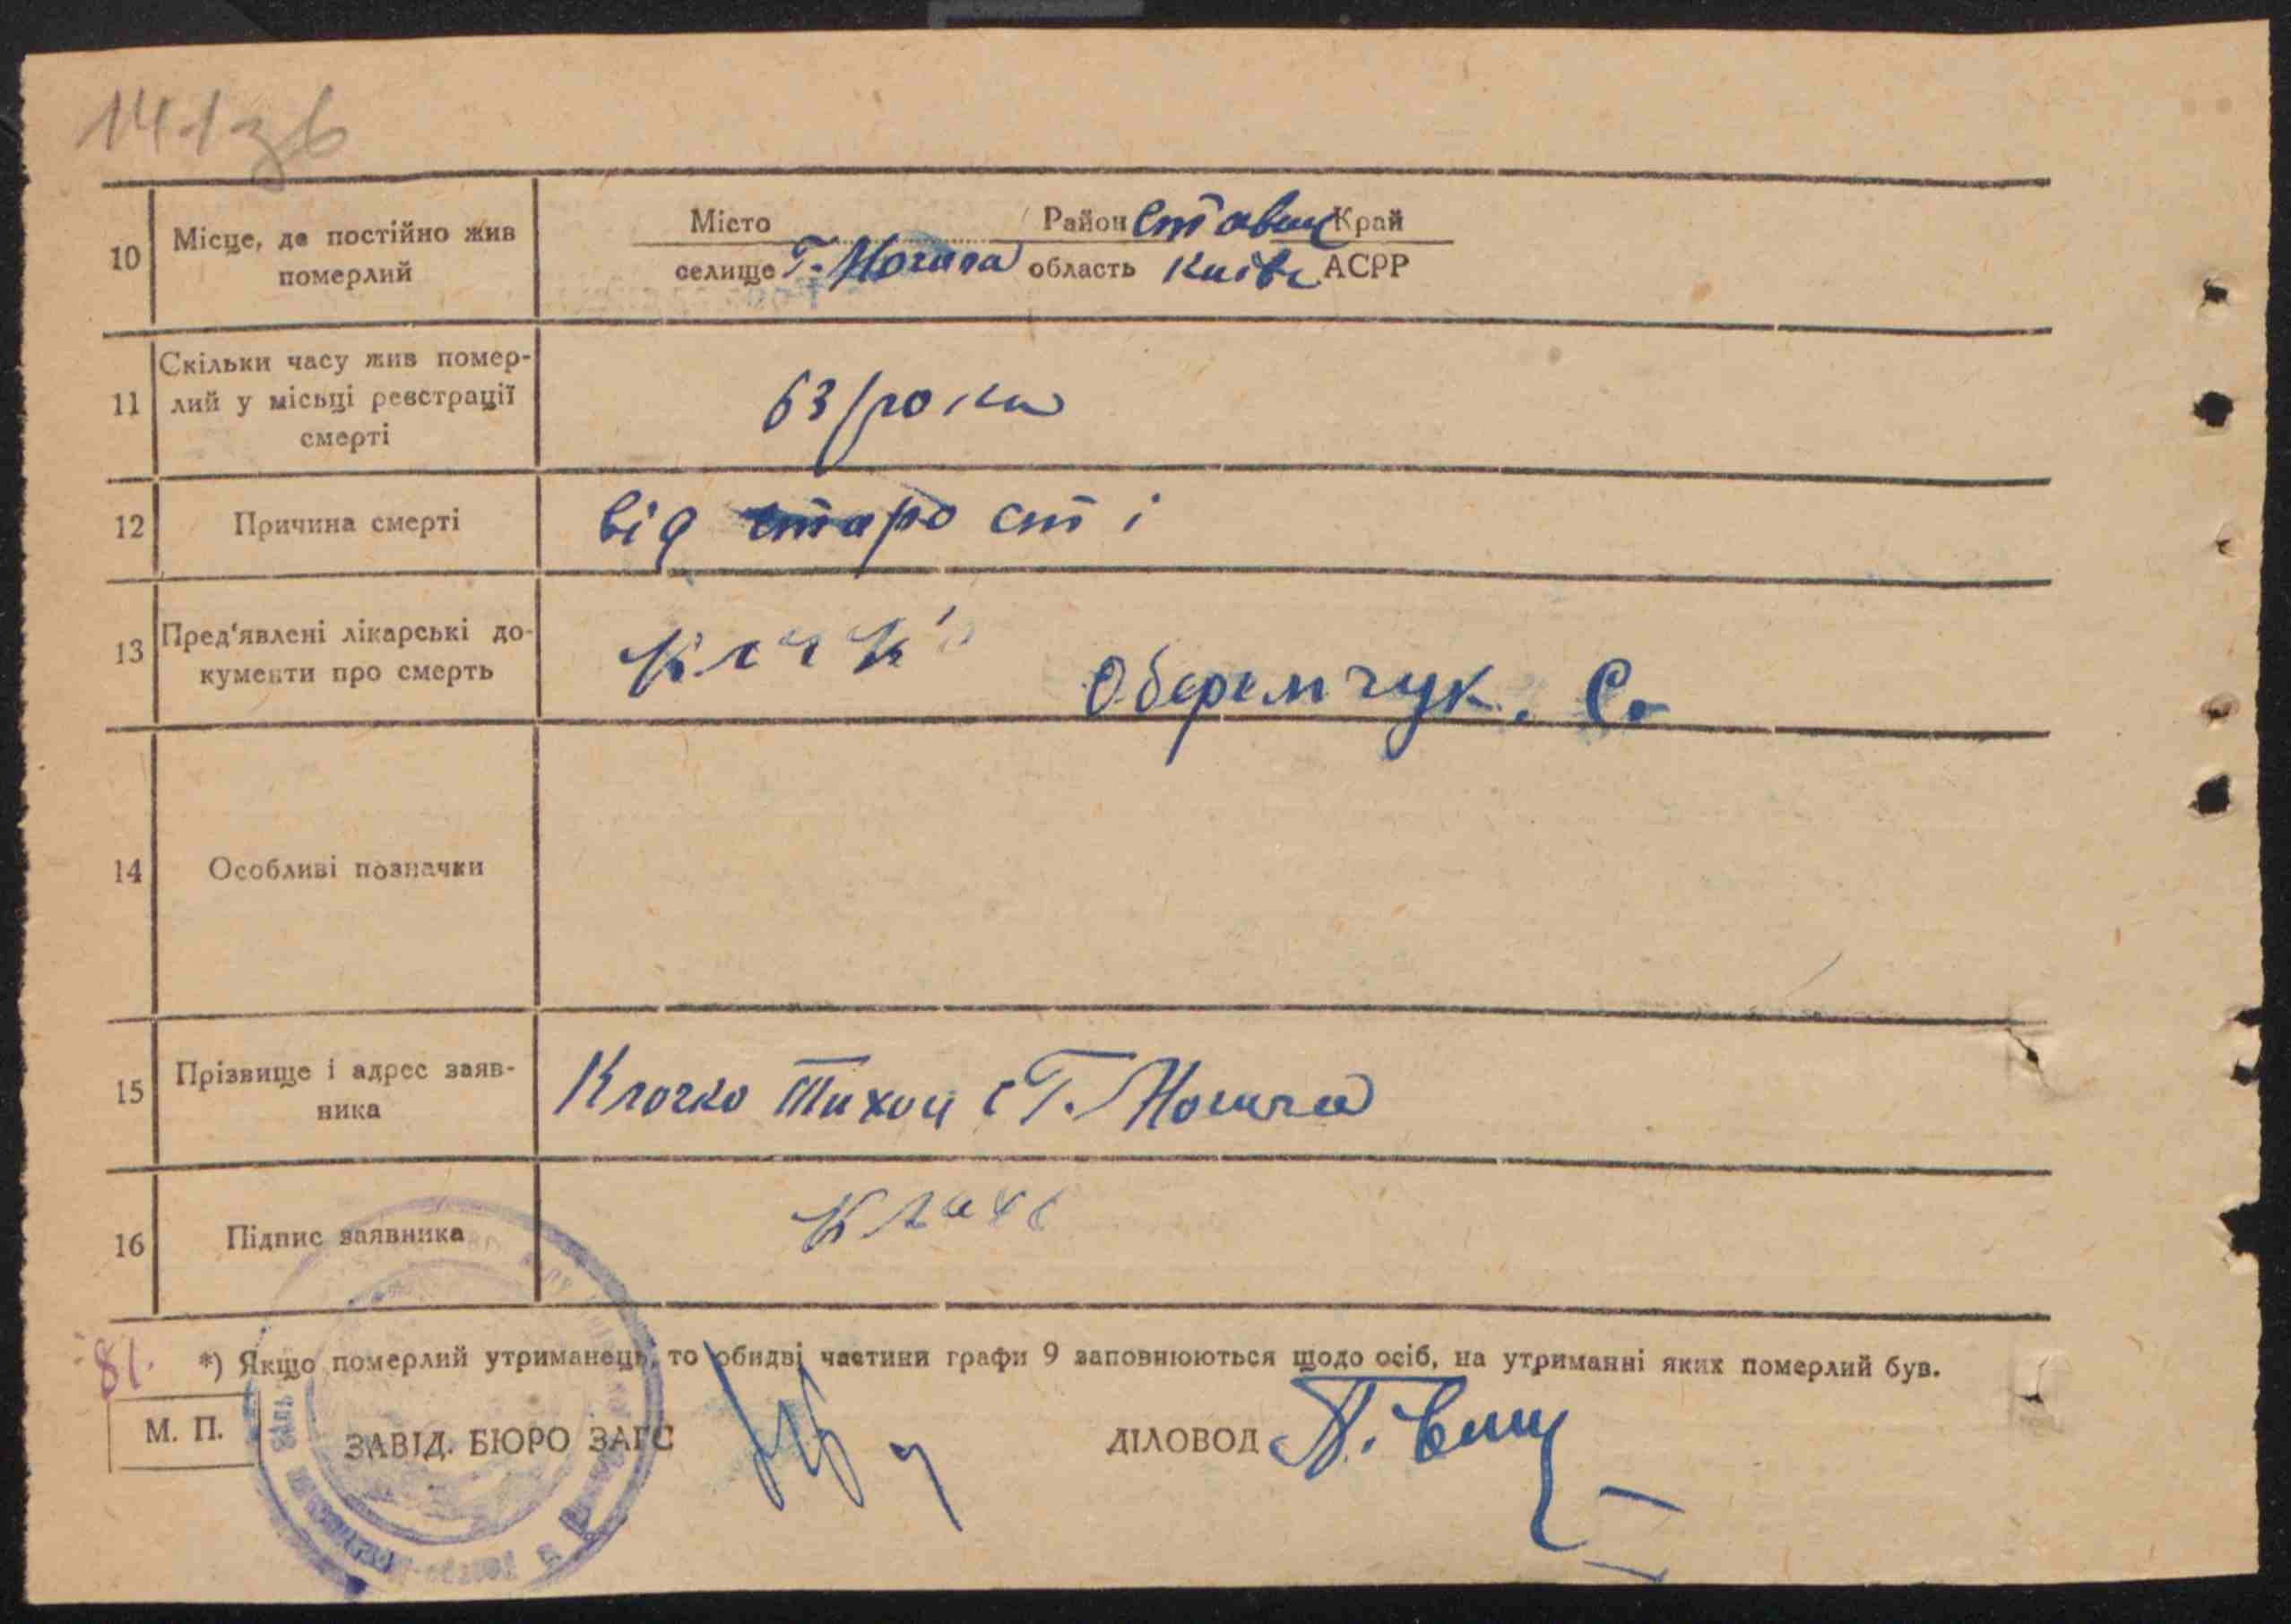 141зв
10 Місце, де постійно жив померлий
Місто Район Ставищ Край
селище Г. Могила область Київс АСРР
11 Скільки часу жив помер-
лий у місьці реєстрації
смерті
63 роки
12 Причина смерті від старості
13 Пред'явлені лікарські до-
кументи про смерть
Оберемчук. С.
14 Особливі позначки
15 Прізвище і адрес заяв-
ника
Клочко Тихон с Г. Могила
16 Підпис заявника
81.
*) Якщо померлий утриманець, то обидві частини графи 9 заповнюються щодо осіб, на утриманні яких померлий був.
М. П.
ЗАВІД. БЮРО ЗАГС ДІЛОВОД